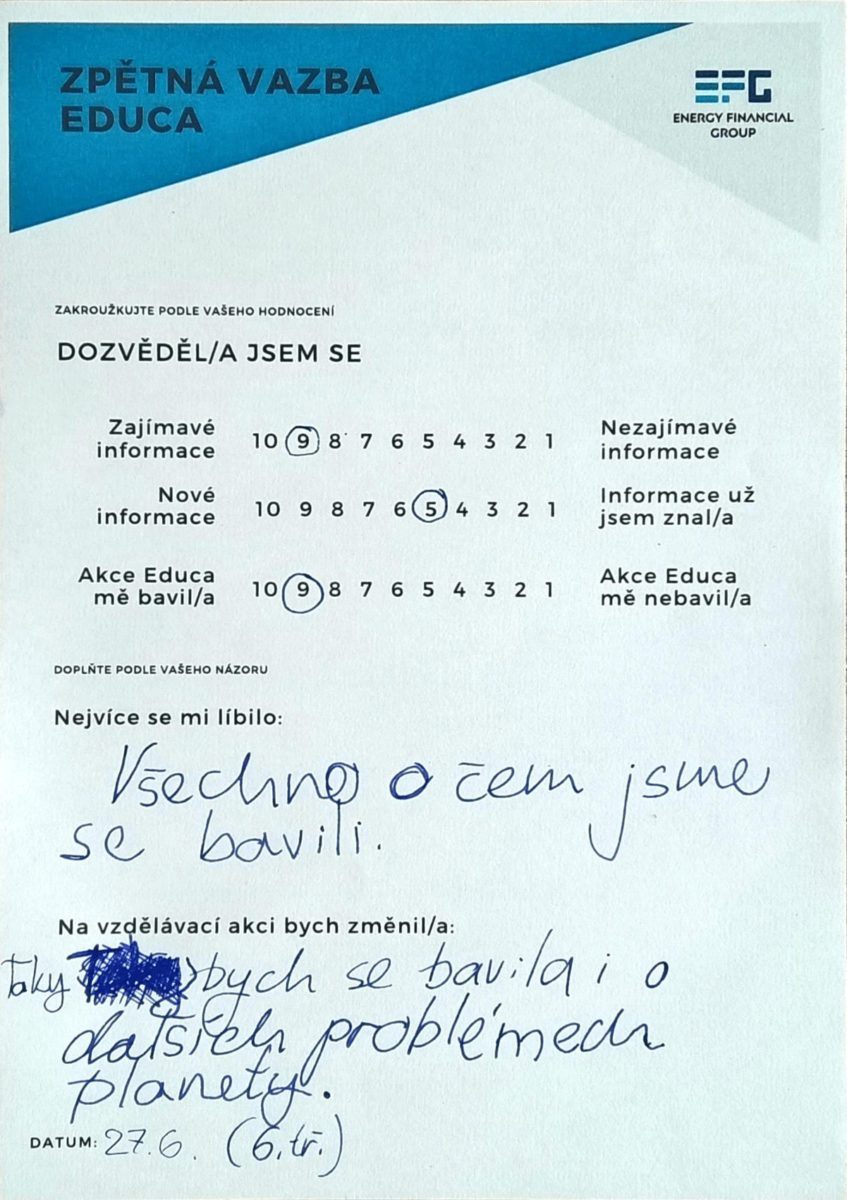 ZPĚTNÁ VAZBA
EDUCA
EFG
ENERGY FINANCIAL
GROUP
ZAKROUŽKUJTE PODLE VAŠEHO HODNOCENÍ
DOZVĚDĚL/A JSEM SE
Zajímavé informace 10 9 8 7 6 5 4 3 2 1 Nezajímavé informace
Nové informace 10 9 8 7 6 5 4 3 2 1 Informace už jsem znal/a
Akce Educa mě bavil/a 10 9 8 7 6 5 4 3 2 1 Akce Educa mě nebavil/a
DOPLŇTE PODLE VAŠEHO NÁZORU
Nejvíce se mi líbilo:
Všechno o čem jsme
se bavili.
Na vzdělávací akci bych změnil/a:
Taky bych se bavila i o
dalších problémech
planety.
DATUM: 27.6. (6. tř.)